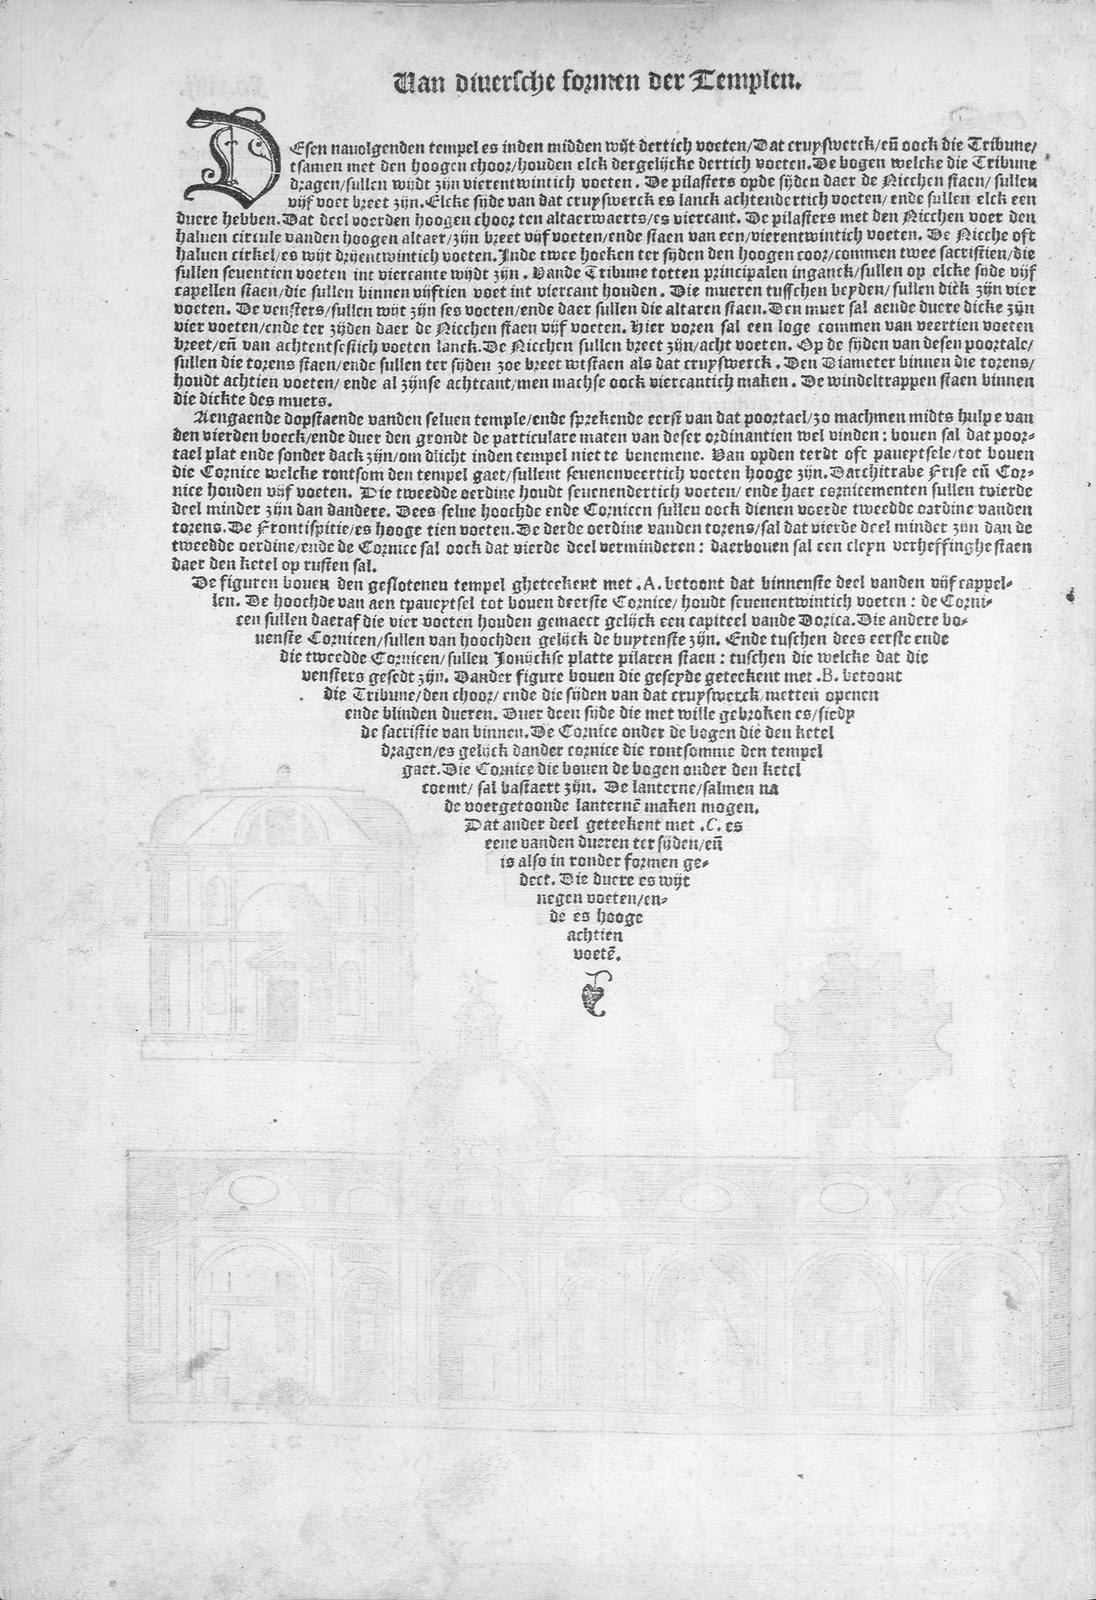 Van diuersche formen der Templen.
DEsen nauolgenden tempel es inden midden wijt dertich voeten/Dat cruyswerck/eñ oock die Tribune/
tsamen met den hoogen choor/houden elck dergelijcke dertich voeten.De bogen welcke die Tribune
dragen/sullen wijdt zijn vierentwintich voeten. De pilasters opde sijden daer de Nicchen staen/ sullen
vijf voet breet zijn.Elcke sijde van dat cruyswerck es lanck achtendertich voeten/ ende sullen elck een
duere hebben.Dat deel voerden hoogen choor ten altaerwaerts/es viercant. De pilasters met den Nicchen voer den
haluen circule vanden hoogen altaer/zijn breet vijf voeten/ende staen van een/vierentwintich voeten. De Nicche oft
haluen cirkel/es wijt drijentwintich voeten.Inde twee hoeken ter sijden den hoogen coor/commen twee sacristien/die
sullen seuentien voeten int viercante wijdt zijn . Vande Tribune totten principalen inganck/sullen op elcke sijde vijf
capellen staen/die sullen binnen vijftien voet int viercant houden. Die mueren tusschen beyden/sullen dick zijn vier
voeten. De vensters/sullen wijt zijn ses voeten/ende daer sullen die altaren staen.Den muer sal aende duere dicke zijn
vier voeten/ende ter zijden daer de Nicchen staen vijf voeten. Hier voren sal een loge commen van veertien voeten
breet/eñ van achtentsestich voeten lanck.De Nicchen sullen breet zijn/acht voeten. Op de sijden van desen poortale/
sullen die torens staen/ende sullen ter sijden zoe breet wtstaen als dat cruyswerck . Den Diameter binnen die torens/
houdt achtien voeten/ ende al zijnse achtcant/men machse oock viercantich maken. De windeltrappen staen binnen
die dickte des muers.
Aengaende dopstaende vanden seluen temple/ende sprekende eerst van dat poortael/zo machmen midts hulpe van
den vierden boeck/ende duer den grondt de particulare maten van deser ordinantien wel vinden: bouen sal dat poor-
tael plat ende sonder dack zijn/om dlicht inden tempel niet te benemene. Van opden terdt oft paueytsele/tot bouen
die Cornice welcke rontsom den tempel gaet/sullent seuenenveertich voeten hooge zijn. Darchitrabe Frise eñ Cor-
nice houden vijf voeten. Die tweedde oerdine houdt seuenendertich voeten/ ende haer cornicementen sullen tvierde
deel minder zijn dan dandere. Dees selue hoochde ende Cornicen sullen oock dienen voerde tweedde oordine vanden
torens.De Frontispitie/es hooge tien voeten.De derde oerdine vanden torens/sal dat vierde deel minder zijn dan de
tweedde oerdine/ende de Cornice sal oock dat vierde deel verminderen: daerbouen sal een cleyn verheffinghe staen
daer den ketel op rusten sal.
De figuren bouen den geslotenen tempel gheteekent met .A. betoont dat binnenste deel vanden vijf cappel-
len. De hoochde van aen tpaueytsel tot bouen deerste Cornice/ houdt seuenentwintich voeten: de Corni-
cen sullen daeraf die vier voeten houden gemaect gelijck een capiteel vande Dorica.Die andere bo-
uenste Cornicen/sullen van hoochden gelijck de buytenste zijn. Ende tuschen dees eerste ende
die tweedde Cornicen/sullen Jonijckse platte pilaren staen: tuschen die welcke dat die
vensters gesedt zijn. Dander figure bouen die geseyde geteekent met .B. betoont
die Tribune/den choor/ ende die sijden van dat cruyswerck/metten openen
ende blinden dueren. Duer deen sijde die met wille gebroken es/siedy
de sacristie van binnen.De Cornice onder de bogen die den ketel
dragen/es gelijck dander cornice die rontsomme den tempel
gaet.Die Cornice die bouen de bogen onder den ketel
coemt/ sal bastaert zijn. De lanterne/salmen na
de voergetoonde lanternẽ maken mogen.
Dat ander deel geteekent met .C. es
eene vanden dueren ter sijden/eñ
is also in ronder formen ge-
dect. Die duere es wijt
negen voeten/en-
de es hooge
achtien
voetẽ.